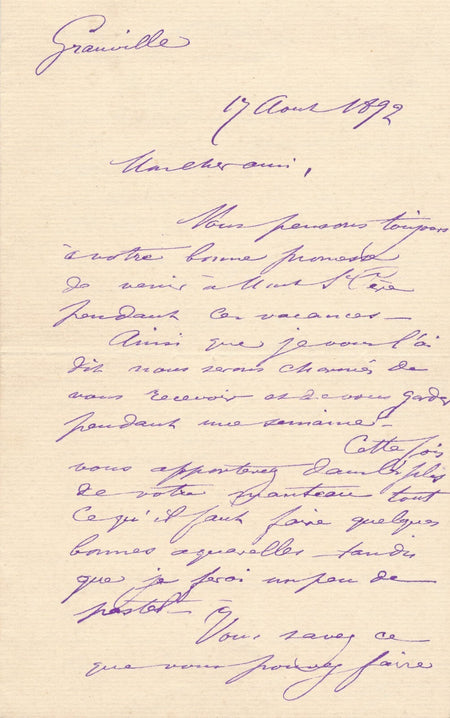 Granville
17 Aout 1892
Mon cher ami,
Nous pensons toujours
à votre bonne promesse
de venir à Mont St Père
pendant ces vacances –
Ainsi que je vous l'ai
dit nous serons charmés de
vous recevoir et de vous garder
pendant une semaine –
Cette fois
vous apporterez dans les plis
de votre manteau tout
ce qu'il faut faire quelques
bonnes aquarelles – tandis
que je ferai un peu de
pastel –
Vous savez ce
que vous pouvez faire